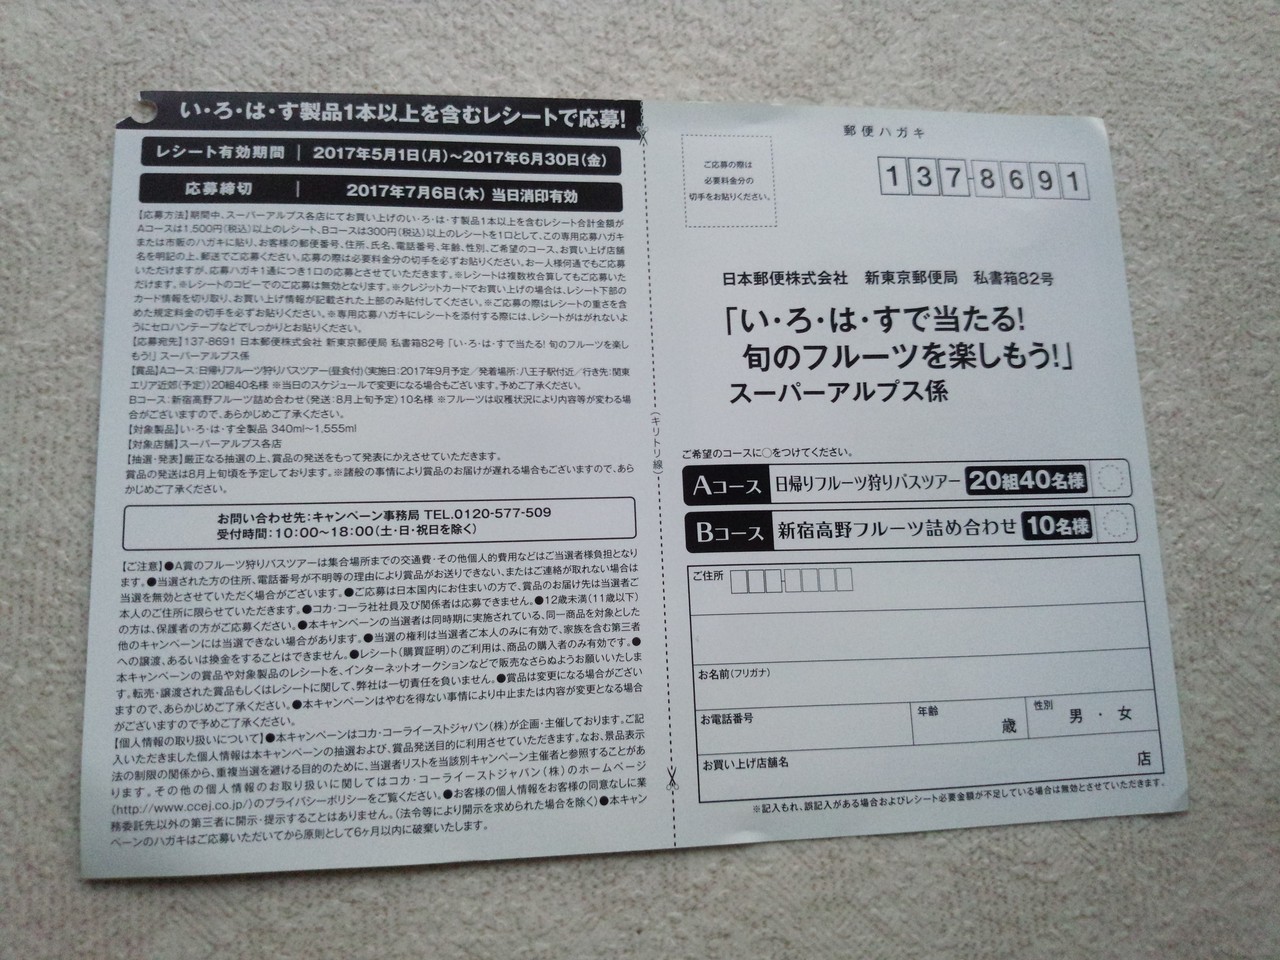 い・ろ・は・す製品1本以上を含むレシートで応募!
レシート有効期間 | 2017年5月1日(月)~2017年6月30日(金)
応募締切 | 2017年7月6日(木) 当日消印有効
【応募方法】期間中、スーパーアルプス各店にてお買い上げのい・ろ・は・す製品1本以上を含むレシート合計金額が
Aコースは1,500円(税込)以上のレシート、Bコースは300円(税込)以上のレシートを1口として、この専用応募ハガキ
または市販のハガキに貼り、お客様の郵便番号、住所、氏名、電話番号、年齢、性別、ご希望のコース、お買い上げ店舗
名を明記の上、郵送でご応募ください。応募の際は必要料金分の切手を必ずお貼りください。お一人様何通でもご応募
いただけますが、応募ハガキ1通につき1口の応募とさせていただきます。※レシートは複数枚合算してもご応募いた
だけます。※レシートのコピーでのご応募は無効となります。※クレジットカードでお買い上げの場合は、レシート下部の
カード情報を切り取り、お買い上げ情報が記載された上部のみ貼付してください。※ご応募の際はレシートの重さを含
めた規定料金の切手を必ずお貼りください。※専用応募ハガキにレシートを添付する際には、レシートがはがれないよ
うにセロハンテープなどでしっかりとお貼りください。
【応募宛先】137-8691 日本郵便株式会社 新東京郵便局 私書箱82号 「い・ろ・は・すで当たる! 旬のフルーツを楽し
もう!」 スーパーアルプス係
【賞品】Aコース:日帰りフルーツ狩りバスツアー(昼食付)(実施日:2017年9月予定/発着場所:八王子駅付近/行き先:関東
エリア近郊(予定))20組40名様 ※当日のスケジュールで変更になる場合もございます。予めご了承ください。
Bコース:新宿高野フルーツ詰め合わせ(発送:8月上旬予定)10名様 ※フルーツは収穫状況により内容等が変わる場
合がございますので、あらかじめご了承ください。
【対象製品】い・ろ・は・す全製品 340ml~1,555ml
【対象店舗】スーパーアルプス各店
【抽選・発表】厳正なる抽選の上、賞品の発送をもって発表にかえさせていただきます。
賞品の発送は8月上旬頃を予定しております。※諸般の事情により賞品のお届けが遅れる場合もございますので、あら
かじめご了承ください。
お問い合わせ先:キャンペーン事務局 TEL.0120-577-509
受付時間:10:00~18:00(土・日・祝日を除く)
【ご注意】●A賞のフルーツ狩りバスツアーは集合場所までの交通費・その他個人的費用などはご当選者様負担となり
ます。●当選された方の住所、電話番号が不明等の理由により賞品がお送りできない、またはご連絡が取れない場合は
当選を無効とさせていただく場合がございます。●ご応募は日本国内にお住まいの方で、賞品のお届け先は当選者ご
本人のご住所に限らせていただきます。●コカ・コーラ社社員及び関係者は応募できません。●12歳未満(11歳以下)
の方は、保護者の方がご応募ください。●本キャンペーンの当選者は同時期に実施されている、同一商品を対象とした
他のキャンペーンには当選できない場合があります。●当選の権利は当選者ご本人のみに有効で、家族を含む第三者
への譲渡、あるいは換金をすることはできません。●レシート(購買証明)のご利用は、商品の購入者のみ有効です。●
本キャンペーンの賞品や対象製品のレシートを、インターネットオークションなどで販売なさらぬようお願いいたしま
す。転売・譲渡された賞品もしくはレシートに関して、弊社は一切責任を負いません。●賞品は変更になる場合がござい
ますので、あらかじめご了承ください。●本キャンペーンはやむを得ない事情により中止または内容が変更となる場合
がございますので予めご了承ください。
【個人情報の取り扱いについて】●本キャンペーンはコカ・コーライーストジャパン(株)が企画・主催しております。ご記
入いただきました個人情報は本キャンペーンの抽選および、賞品発送目的に利用させていただきます。なお、景品表示
法の制限の関係から、重複当選を避ける目的のために、当選者リストを当該別キャンペーン主催者と参照することがあ
ります。その他の個人情報のお取り扱いに関してはコカ・コーライーストジャパン(株)のホームページ
(http://www.ccej.co.jp/)のプライバシーポリシーをご覧ください。●お客様の個人情報をお客様の同意なしに業
務委託先以外の第三者に開示・提示することはありません。(法令等により開示を求められた場合を除く)●本キャン
ペーンのハガキはご応募いただいてから原則として6ヶ月以内に破棄いたします。
(キリトリ線)
郵便ハガキ
ご応募の際は
必要料金分の
切手をお貼りください。
137-8691
日本郵便株式会社 新東京郵便局 私書箱82号
「い・ろ・は・すで当たる!
旬のフルーツを楽しもう!」
スーパーアルプス係
ご希望のコースに○をつけてください。
Aコース 日帰りフルーツ狩りバスツアー 20組40名様
Bコース 新宿高野フルーツ詰め合わせ 10名様
ご住所
お名前(フリガナ)
お電話番号 年齢 歳 性別 男・女
お買い上げ店舗名 店
※記入もれ、誤記入がある場合およびレシート必要金額が不足している場合は無効とさせていただきます。